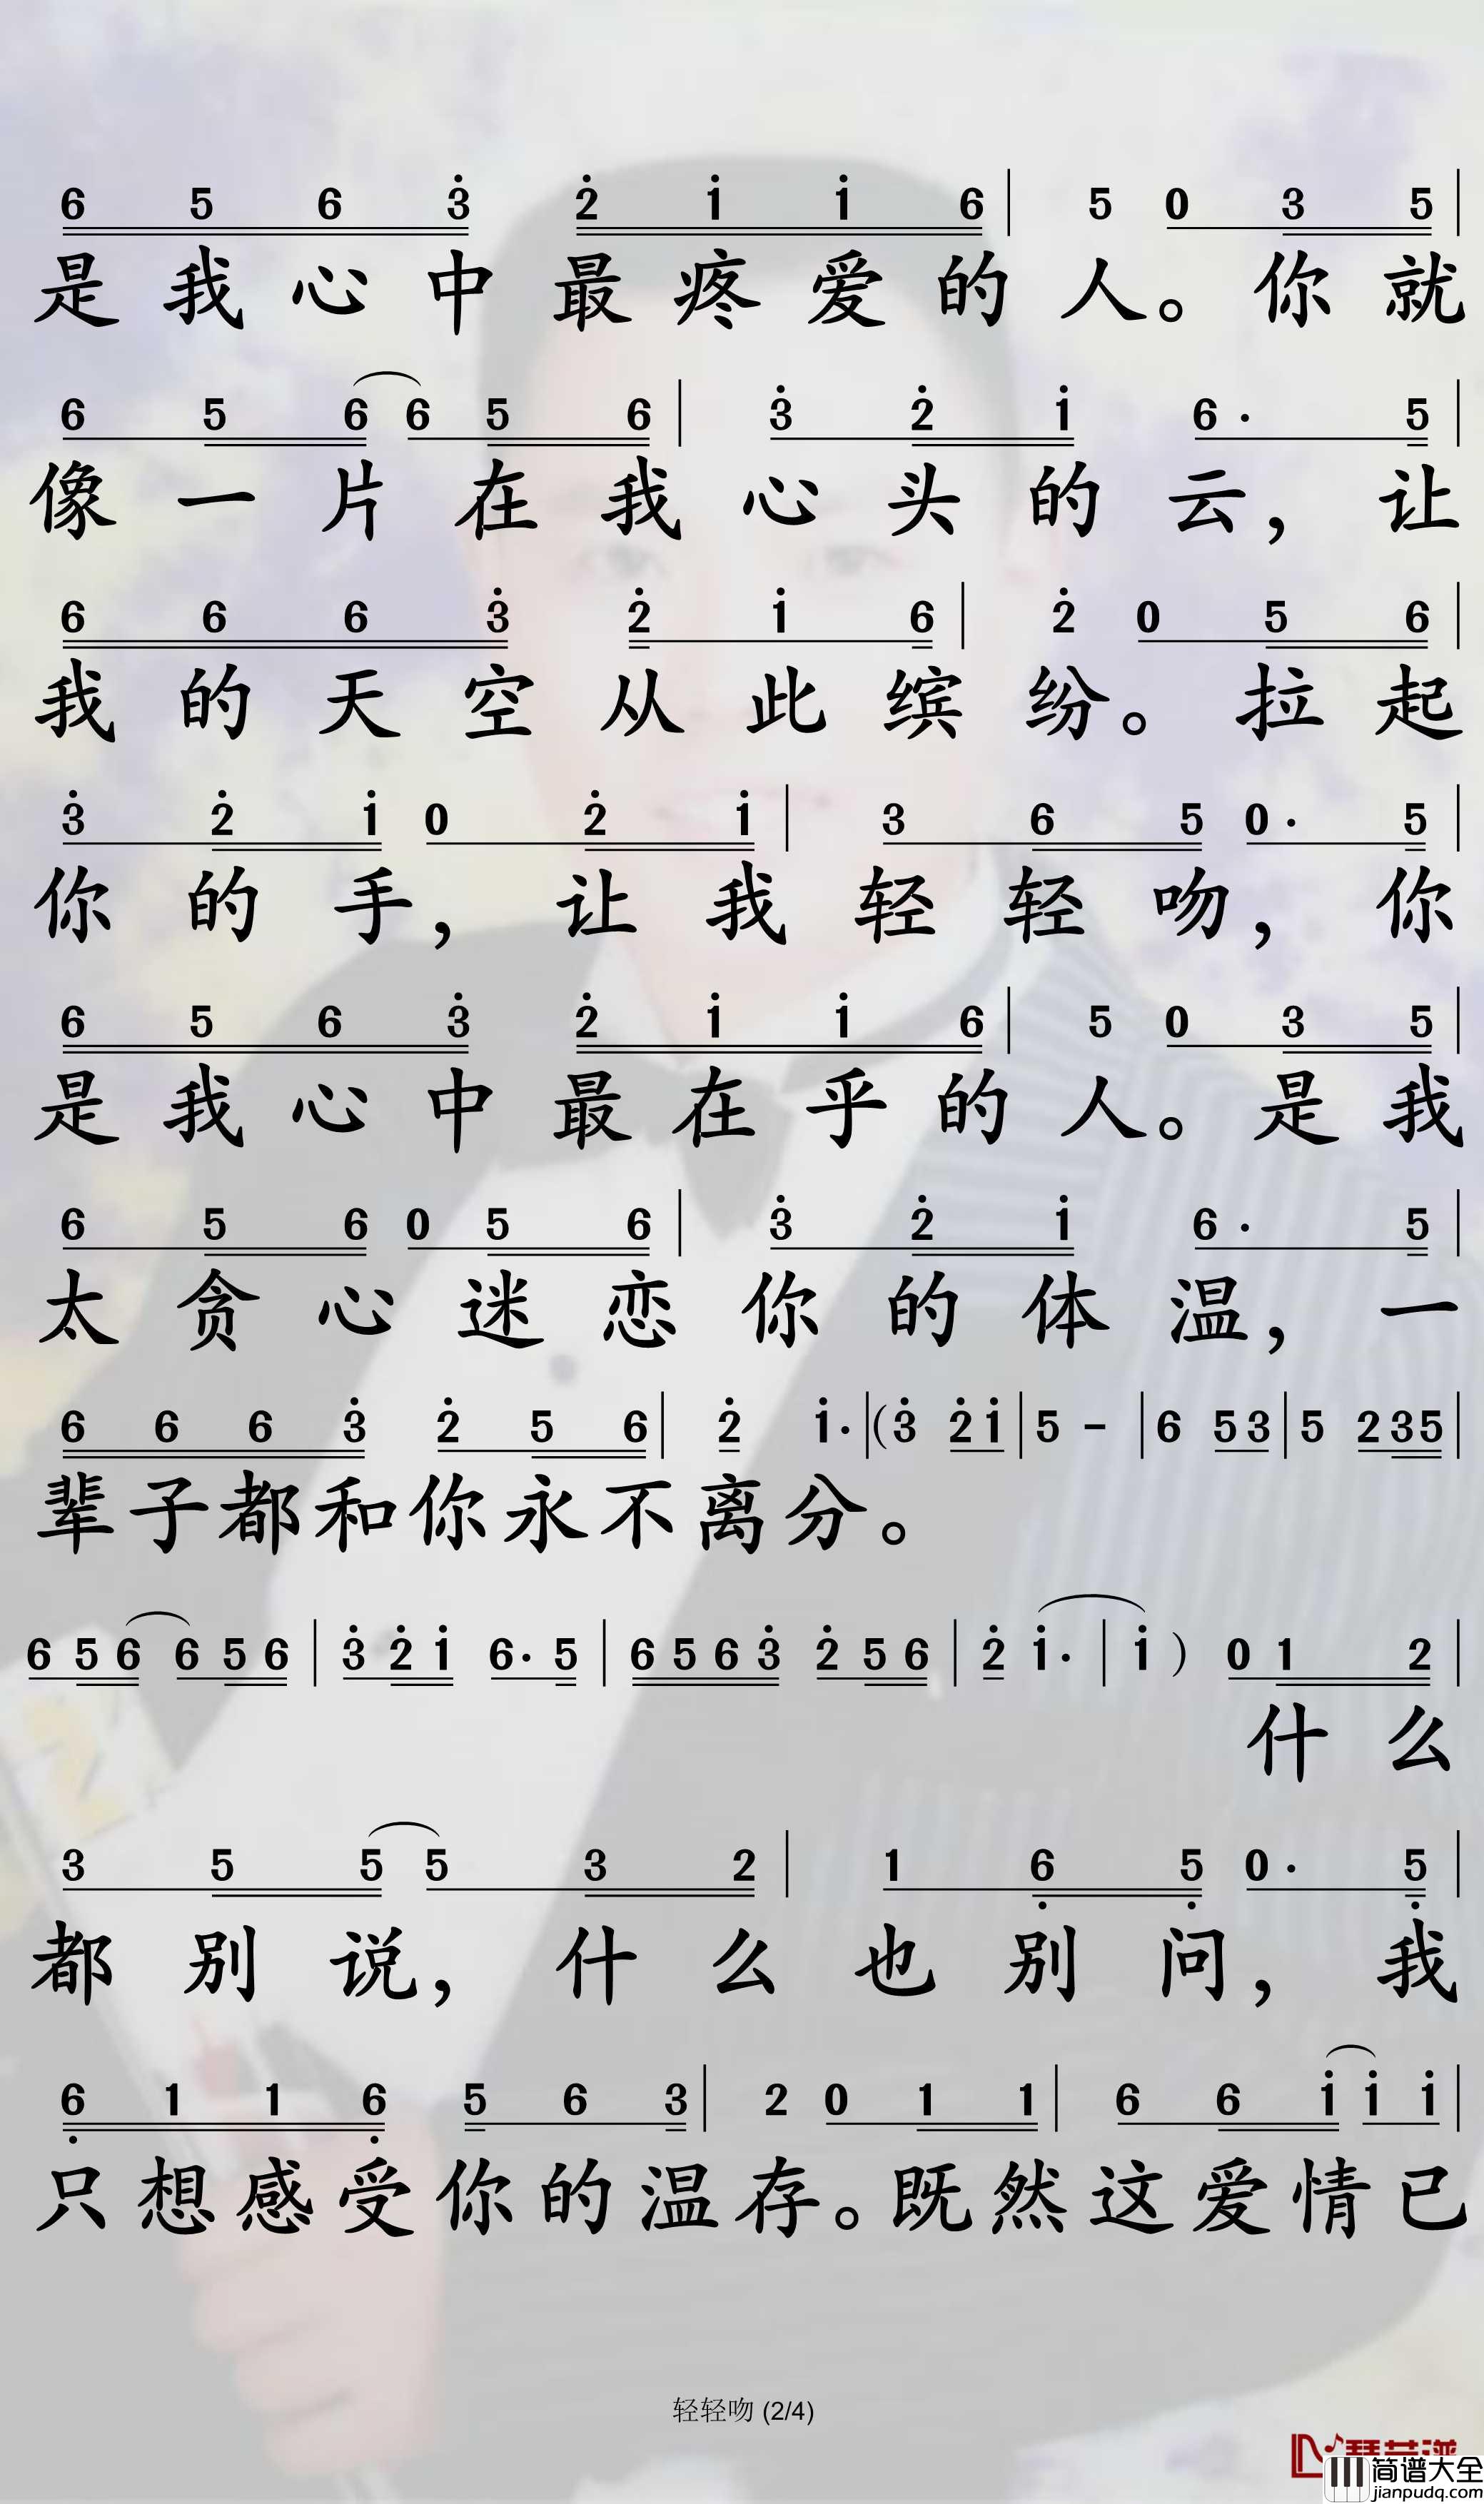 6 5 6 3̇ 2̇ 1̇ 1̇ 6 | 5 0 3 5 |
是我心中最疼爱的人。你就
6 5 6 6 5 6 | 3̇ 2̇ 1̇ 6· 5 |
像一片在我心头的云，让
6 6 6 3̇ 2̇ 1̇ 6 | 2̇ 0 5 6 |
我的天空从此缤纷。拉起
3̇ 2̇ 1̇ 0 2̇ 1̇ | 3 6 5 0· 5 |
你的手，让我轻轻吻，你
6 5 6 3̇ 2̇ 1̇ 1̇ 6 | 5 0 3 5 |
是我心中最在乎的人。是我
6 5 6 0 5 6 | 3̇ 2̇ 1̇ 6· 5 |
太贪心迷恋你的体温，一
6 6 6 3̇ 2̇ 5 6 | 2̇ 1̇· | (3̇ 2̇ 1̇ | 5 - | 6 5 3 | 5 2 3 5 |
辈子都和你永不离分。
6 5 6 6 5 6 | 3̇ 2̇ 1̇ 6· 5 | 6 5 6 3̇ 2̇ 5 6 | 2̇ 1̇· | 1̇ ) 0 1 2 |
什么
3 5 5 5 3 2 | 1 6̣ 5̣ 0· 5̣ |
都别说，什么也别问，我
6̣ 1 1 6̣ 5 6 3 | 2 0 1 1 | 6 6 1̇ 1̇ 1̇ |
只想感受你的温存。既然这爱情已
轻轻吻 (2/4)
简谱大全
jianpudq.com